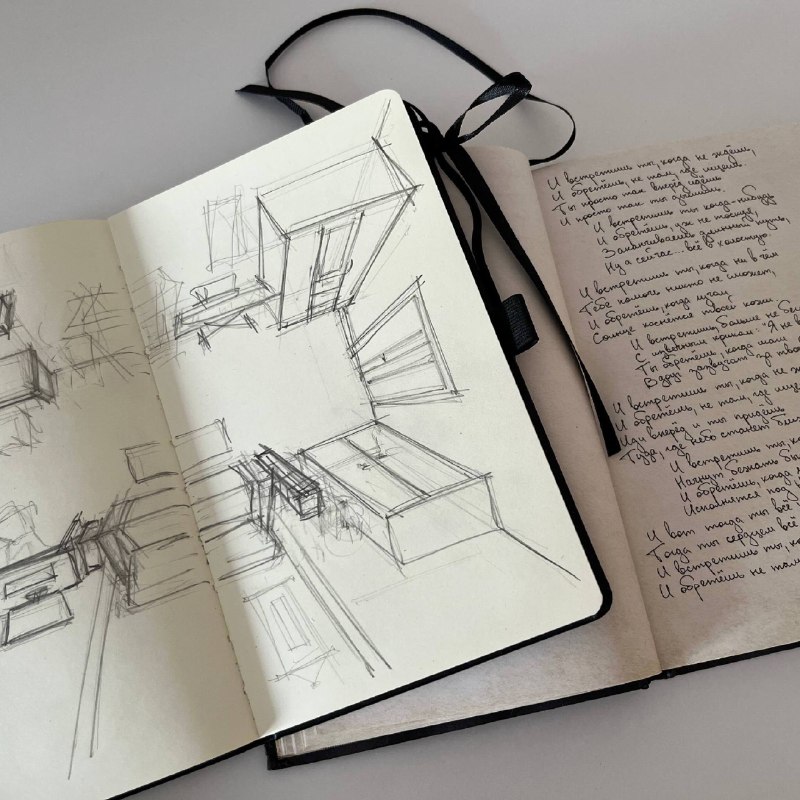 И встретишь ты, когда не ждёшь,
И обретёшь, не там, где ищешь.
Ты просто там вперёд идёшь
И просто там ты
И встретишь ты когда-нибудь
И обретёшь, уж не тоскуя,
Заканчиваешь длинный путь,
Ну а сейчас... всё в холостую.
И встретишь ты, когда ни в чём
Тебе помочь никто не сможет,
И обретёшь, когда лучам
Солнце коснётся твоей кожи
И встретишь, больше не
С извечным криком: "Я не
Ты обретёшь, когда шали
Вдруг зазвучат за
И встретишь ты, когда не
И обретёшь, не там, где ище
Иди вперёд и ты придёшь
Туда, где небо станет бли
И встретишь ты, ко
Начнут бежать бы
И обретёшь, когда
Исполнятся под
И вот тогда ты всё
Тогда ты сердцем всё
И встретишь ты, ко
И обретёшь не там